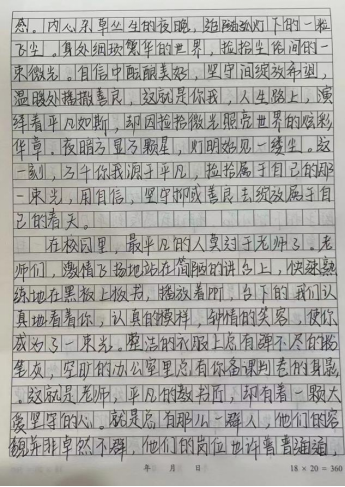 感。内心杂草丛生的夜晚,追随孤灯下的一粒
飞尘。身处细琐繁华的世界,捡拾尘陌间的一
束微光。自信中酝酿美好,坚守间绽放希望,
温暖处播撒善良,这就是你我,人生路上,演
绎着平凡如斯,却因捡拾微光照亮世界的炫彩
华章。夜暗了显了颗星,灯明始见一缕尘。这
一刻,万千你我源于平凡,捡拾属于自己的那
一束光,用自信,坚守抑或善良去绽放属于自
己的春天。
在校园里,最平凡的人莫过于老师了。老
师们,激情飞扬地站在简陋的讲台上,快速熟
练地在黑板上板书,播放着PPT,台下的我们认
真地看着你,认真的模样,钟情的笑容,使你
成为了一束光。整洁的衣服上总有弹不尽的粉
笔灰,空旷的办公室里总有你备课判卷的身影
。这就是老师,平凡的教书匠,却有着一颗大
爱坚守的心。就是总有那么一群人,他们的容
貌并非卓然不群,他们的岗位也许普普通通,
年 月 日 18×20=360